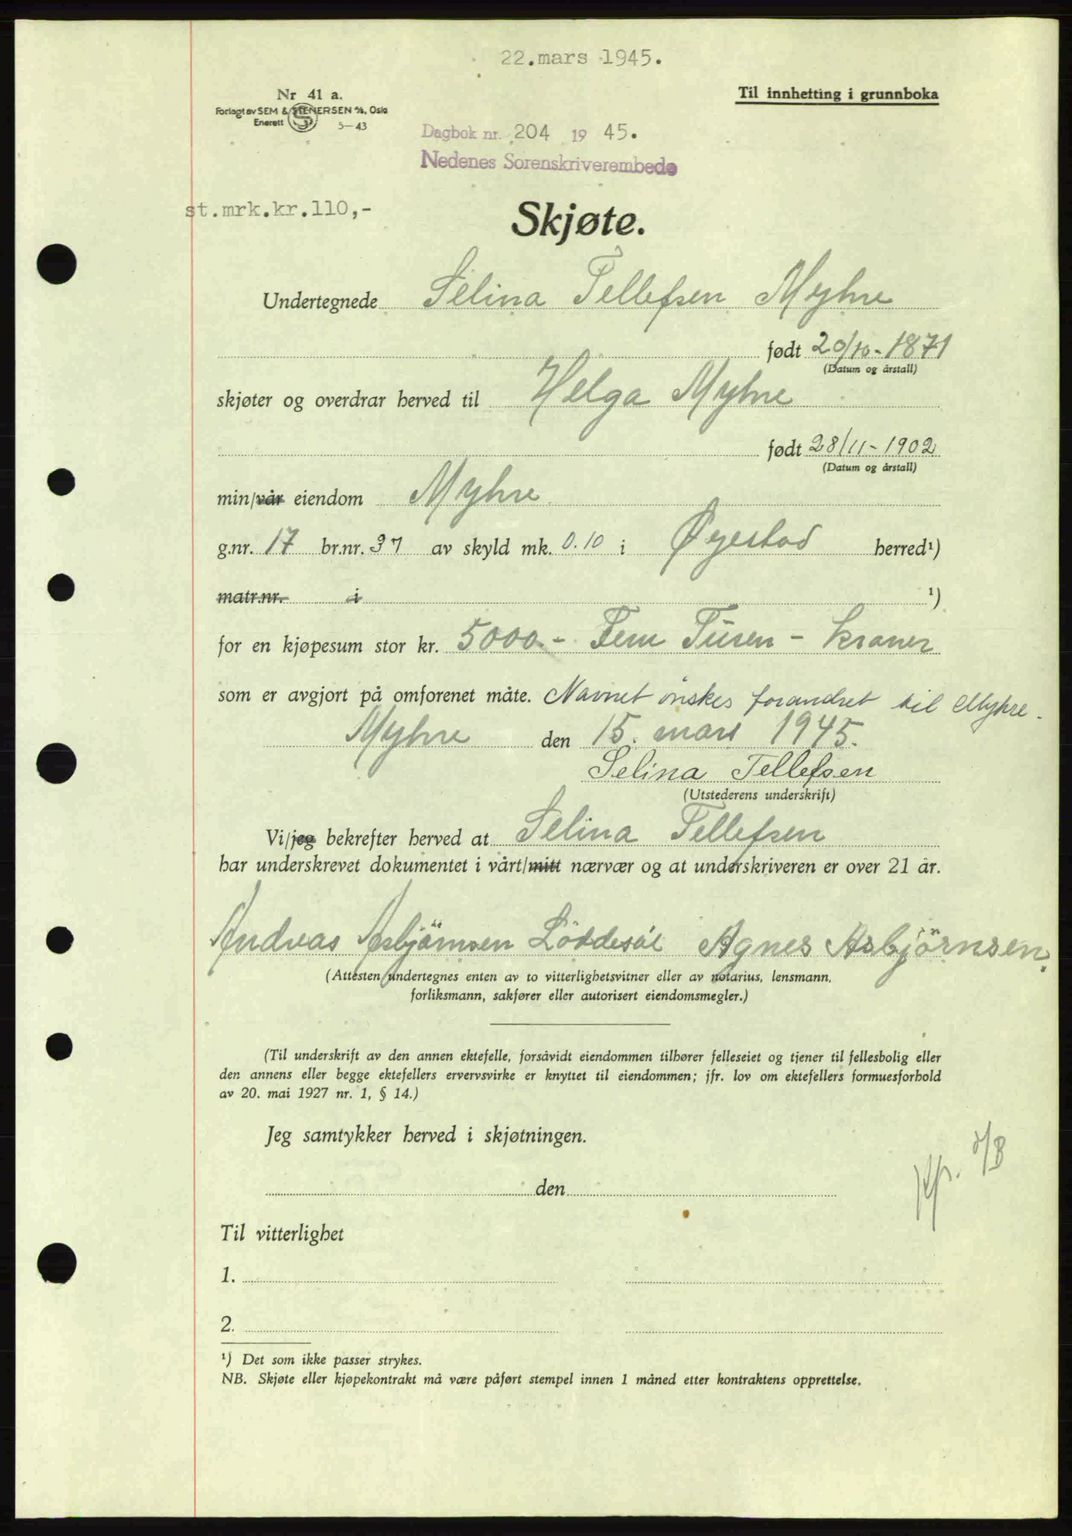 22.mars 1945.
Nr 41 a.
Forlagt av SEM & STENERSEN A/S, Oslo
Enerett 5-43
Til innhefting i grunnboka
Dagbok nr. 204 1945.
Nedenes Sorenskriverembede
st.mrk.kr.110,-
Skjøte.
Undertegnede Selina Tellefsen Myhre
født 20/10-1871
(Datum og årstall)
skjøter og overdrar herved til Helga Myhre
født 28/11-1902
(Datum og årstall)
min/vår eiendom Myhre
g.nr. 17 br.nr. 37 av skyld mk. 0.10 i Øyestad herred¹)
matr.nr. i ¹)
for en kjøpesum stor kr. 5000.- Fem Tusen - kroner
som er avgjort på omforenet måte. Navnet ønskes forandret til Myhre.
Myhre den 15. mars 1945.
Selina Tellefsen
(Utstederens underskrift)
Vi/jeg bekrefter herved at Selina Tellefsen
har underskrevet dokumentet i vårt/mitt nærvær og at underskriveren er over 21 år.
Andreas Asbjörnsen Löddesöl Agnes Asbjörnsen.
(Attesten undertegnes enten av to vitterlighetsvitner eller av notarius, lensmann,
forliksmann, sakfører eller autorisert eiendomsmegler.)
(Til underskrift av den annen ektefelle, forsåvidt eiendommen tilhører felleseiet og tjener til fellesbolig eller
den annens eller begge ektefellers ervervsvirke er knyttet til eiendommen; jfr. lov om ektefellers formuesforhold
av 20. mai 1927 nr. 1, § 14.)
Jeg samtykker herved i skjøtningen.
den
Til vitterlighet
1.
2.
¹) Det som ikke passer strykes.
NB. Skjøte eller kjøpekontrakt må være påført stempel innen 1 måned etter kontraktens opprettelse.